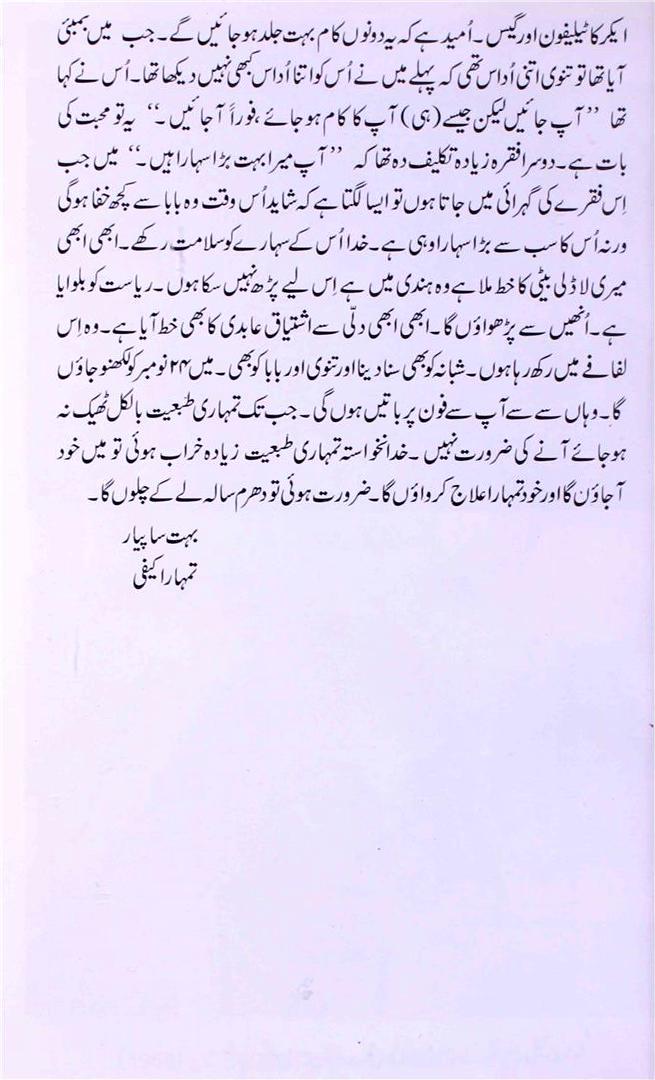 ایکر کا ٹیلیفون اور گیس۔ اُمید ہے کہ یہ دونوں کام بہت جلد ہو جائیں گے۔ جب میں بمبئی
آیا تھا تو تنوی اتنی اُداس تھی کہ پہلے میں نے اُس کو اتنا اُداس کبھی نہیں دیکھا تھا۔ اُس نے کہا
تھا ”آپ جائیں لیکن جیسے (ہی) آپ کا کام ہو جائے، فوراً آ جائیں۔“ یہ تو محبت کی
بات ہے۔ دوسرا فقرہ زیادہ تکلیف دہ تھا کہ ”آپ میرا بہت بڑا سہارا ہیں۔“ میں جب
اِس فقرے کی گہرائی میں جاتا ہوں تو ایسا لگتا ہے کہ شاید اُس وقت وہ بابا سے کچھ خفا ہو گی
ورنہ اُس کا سب سے بڑا سہارا وہی ہے۔ خدا اُس کے سہارے کو سلامت رکھے۔ ابھی ابھی
میری لاڈلی بیٹی کا خط ملا ہے وہ ہندی میں ہے اِس لیے پڑھ نہیں سکا ہوں۔ ریاست کو بلوایا
ہے۔ اُنھیں سے پڑھواؤں گا۔ ابھی ابھی دلّی سے اشتیاق عابدی کا بھی خط آیا ہے۔ وہ اِس
لفافے میں رکھ رہا ہوں۔ شبانہ کو بھی سنا دینا اور تنوی اور بابا کو بھی۔ میں ۲۴ نومبر کو لکھنو جاؤں
گا۔ وہاں سے سے آپ سے فون پر باتیں ہوں گی۔ جب تک تمہاری طبعیت بالکل ٹھیک نہ
ہو جائے آنے کی ضرورت نہیں۔ خدانخواستہ تمہاری طبعیت زیادہ خراب ہوئی تو میں خود
آ جاؤں گا اور خود تمہارا علاج کرواؤں گا۔ ضرورت ہوئی تو دھرم سالہ لے کے چلوں گا۔
بہت سا پیار
تمہارا کیفی